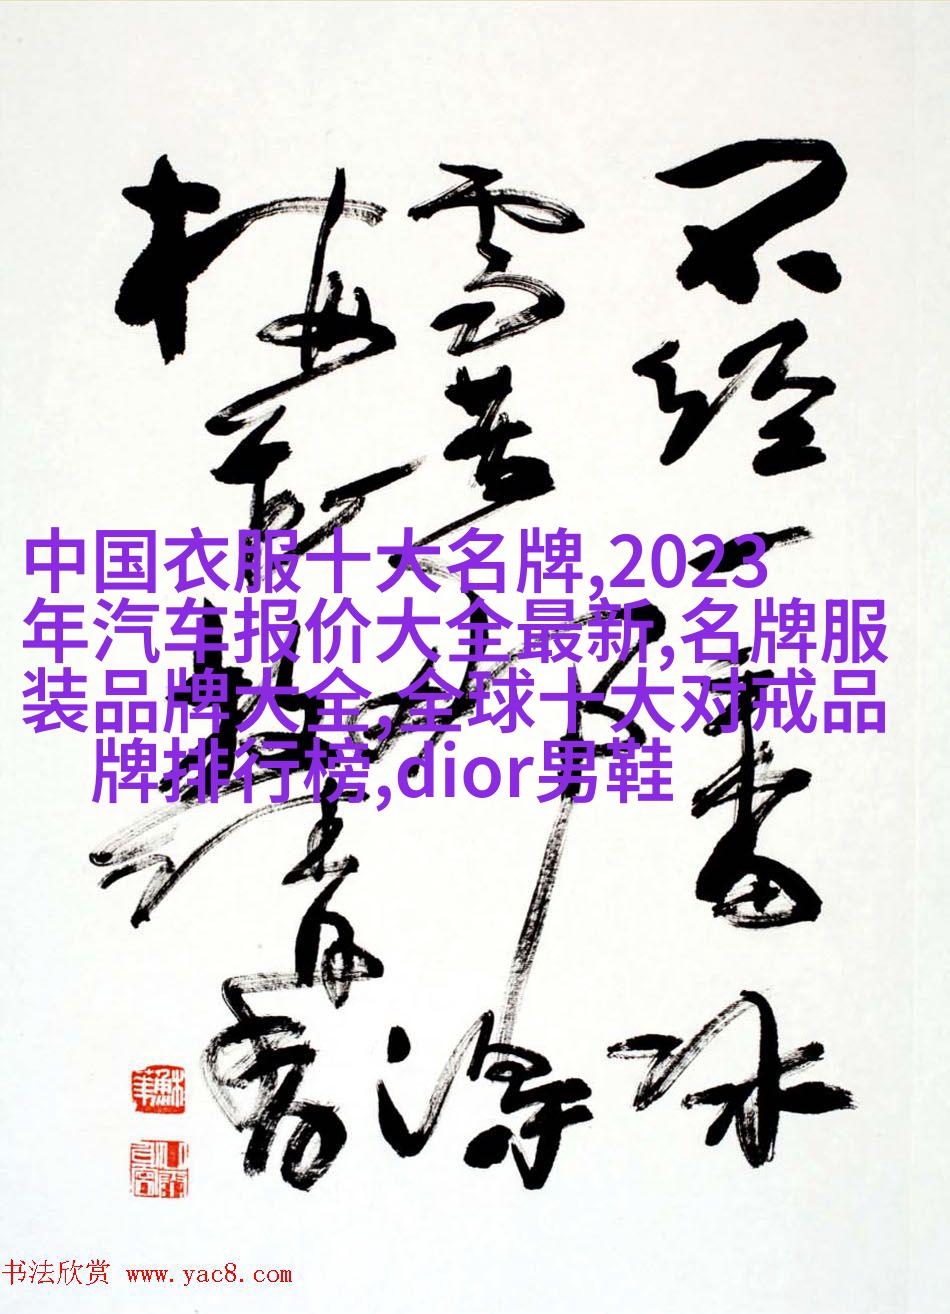 不经一番冰
雪苦得
梅花清香
中国衣服十大名牌,2023
年汽车报价大全最新,名牌服
装品牌大全,全球十大对戒品
牌排行榜,dior男鞋
书法欣赏 www.yac8.com